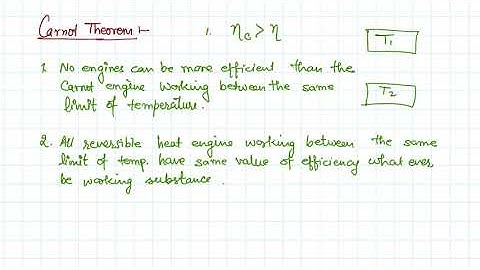 Carnot Theorem :-
1. ηc > η
T1
1. No engines can be more efficient than the
Carnot engine working between the same
limit of temperature.
T2
2. All reversible heat engine working between the same
limit of temp. have same value of efficiency what ever
be working substance.